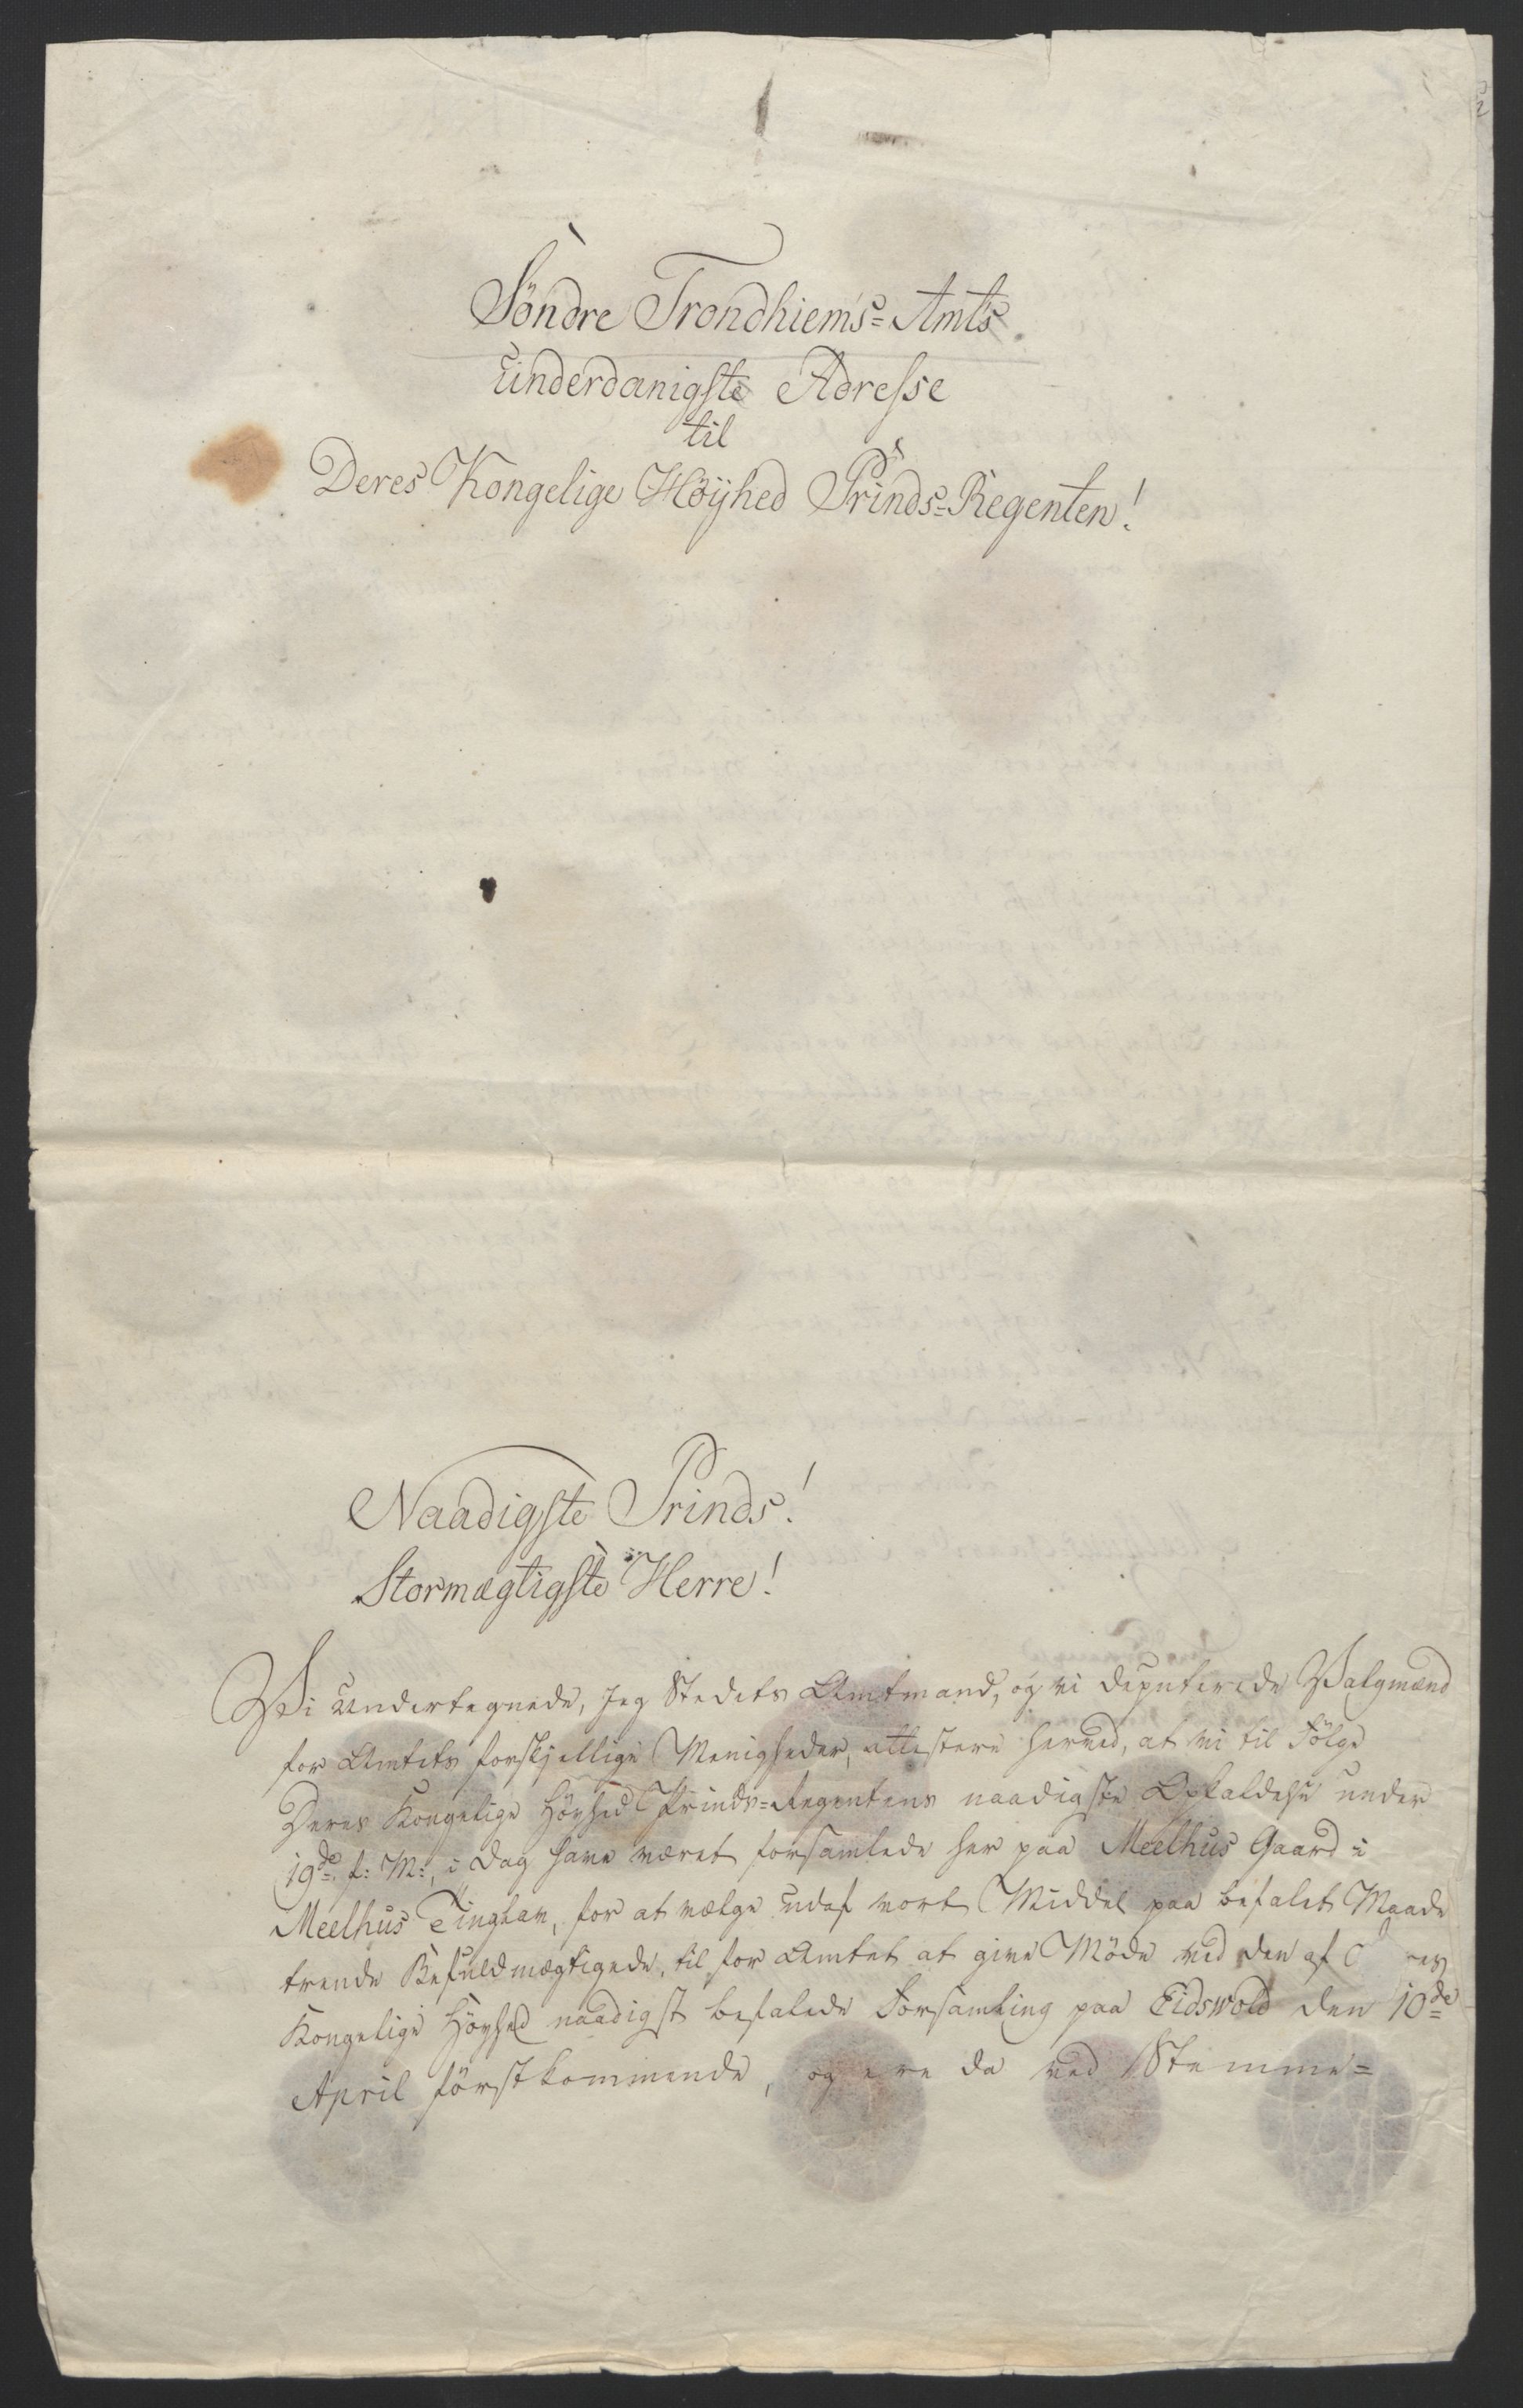 Söndre Trondhiems=Amts
underdanigste Adresse
til
Deres Kongelige Höÿhed Prinds=Regenten!
Naadigste Prinds!
Stormægtigste Herre!
Vi undertegnede, Jeg Stedets Amtmand, og vi deputerede Valgmænd
for Amtets forskjellige Menigheder, attestere herved, at vi til Fölge
Deres Kongelige Höyhed Prinds=Regentens naadigste Opkaldelse under
19de f: M:, i Dag have været forsamlede her paa Meelhus Gaard i
Meelhus Tinglav, for at vælge udaf vort Middel paa befalet Maade
trende Befuldmægtigede, til for Amtet at give Möde ved den af res
Kongelige Höyhed naadigst befalede Forsamling paa Eidswold den 10de
April förstkommende, og ere da ved Stemme=